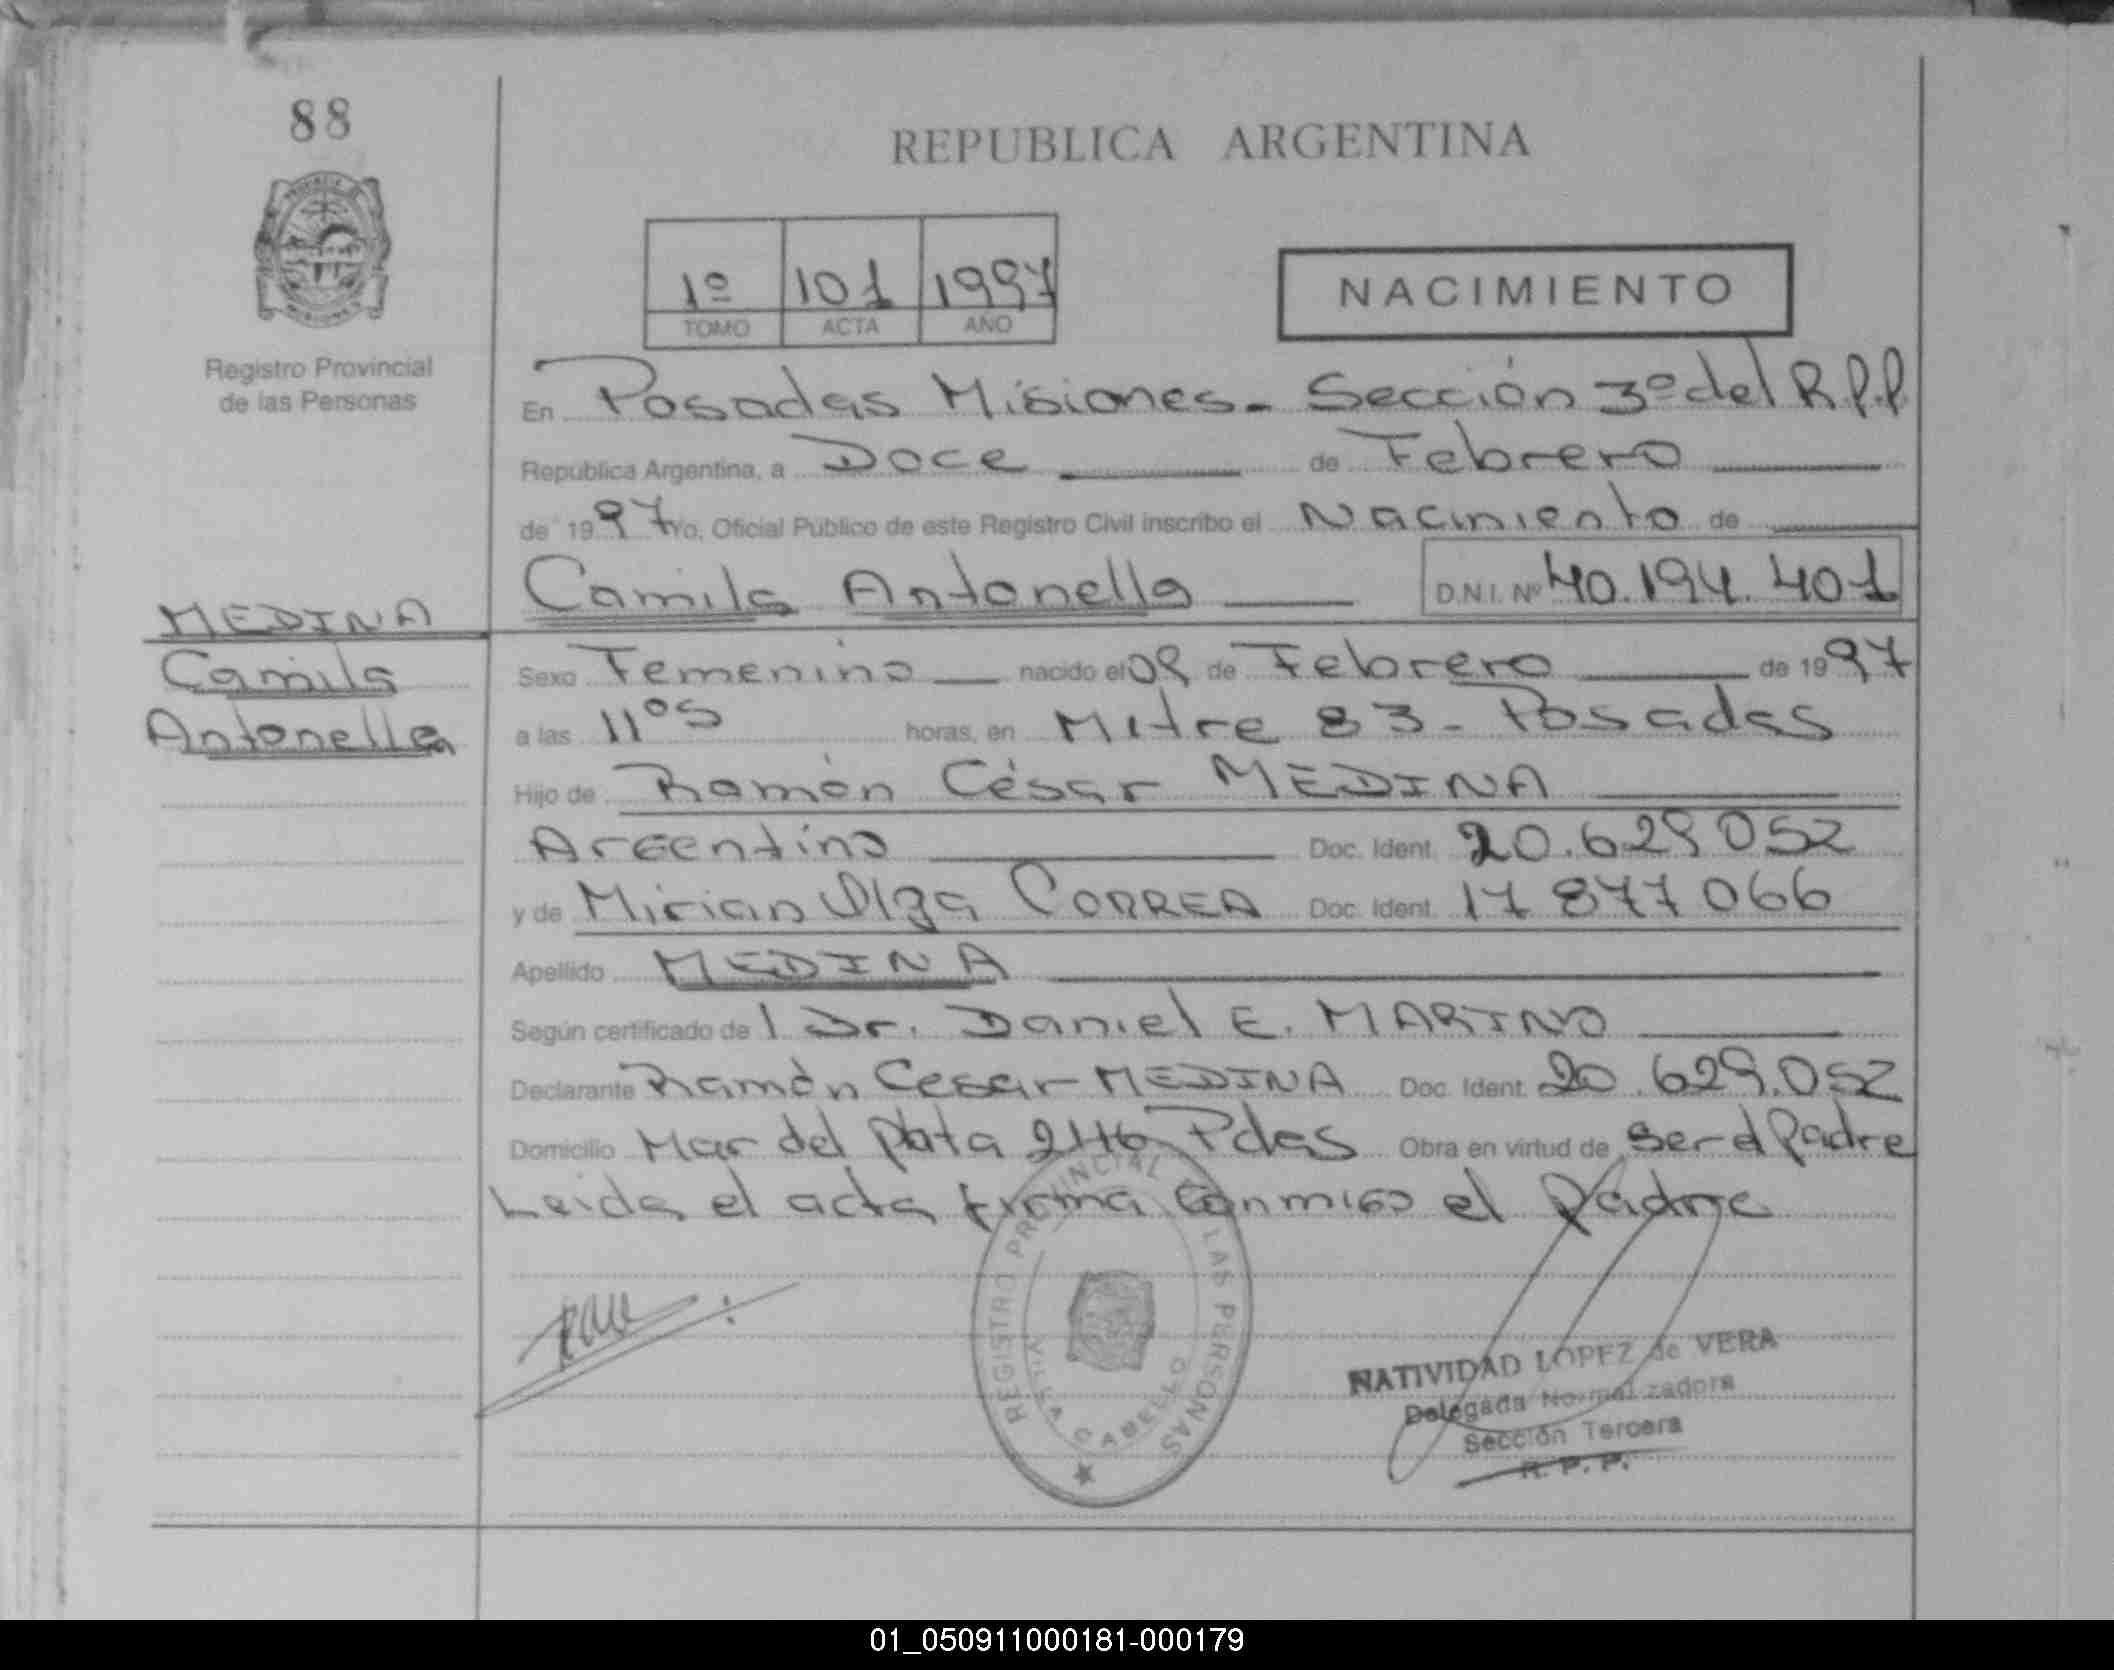 88
REPUBLICA ARGENTINA
1º 101 1997
TOMO ACTA AÑO
NACIMIENTO
Registro Provincial
de las Personas
En Posadas Misiones - Sección 3º del R.P.P
República Argentina, a Doce de Febrero
de 1997 Yo, Oficial Público de este Registro Civil inscribo el Nacimiento de
Camila Antonella D.N.I. Nº 40.194.401
MEDINA
Camila
Antonella
Sexo Femenino nacido el 09 de Febrero de 1997
a las 11º5 horas, en Mitre 83 - Posadas
Hijo de Ramón César MEDINA
Argentino Doc. Ident. 20.629052
y de Mirian Olga CORREA Doc. Ident. 17 877 066
Apellido MEDINA
Según certificado de l Dr. Daniel E. MARINO
Declarante Ramón Cesar MEDINA Doc. Ident. 20.629.052
Domicilio Mar del plata 2446 Pdas Obra en virtud de ser el padre
Leida el acta firma conmigo el padre
REGISTRO PROVINCIAL LAS PERSONAS
VILLA CABELLO
NATIVIDAD LOPEZ de VERA
Delegada Normalizadora
Sección Tercera
R. P. P.
01_050911000181-000179